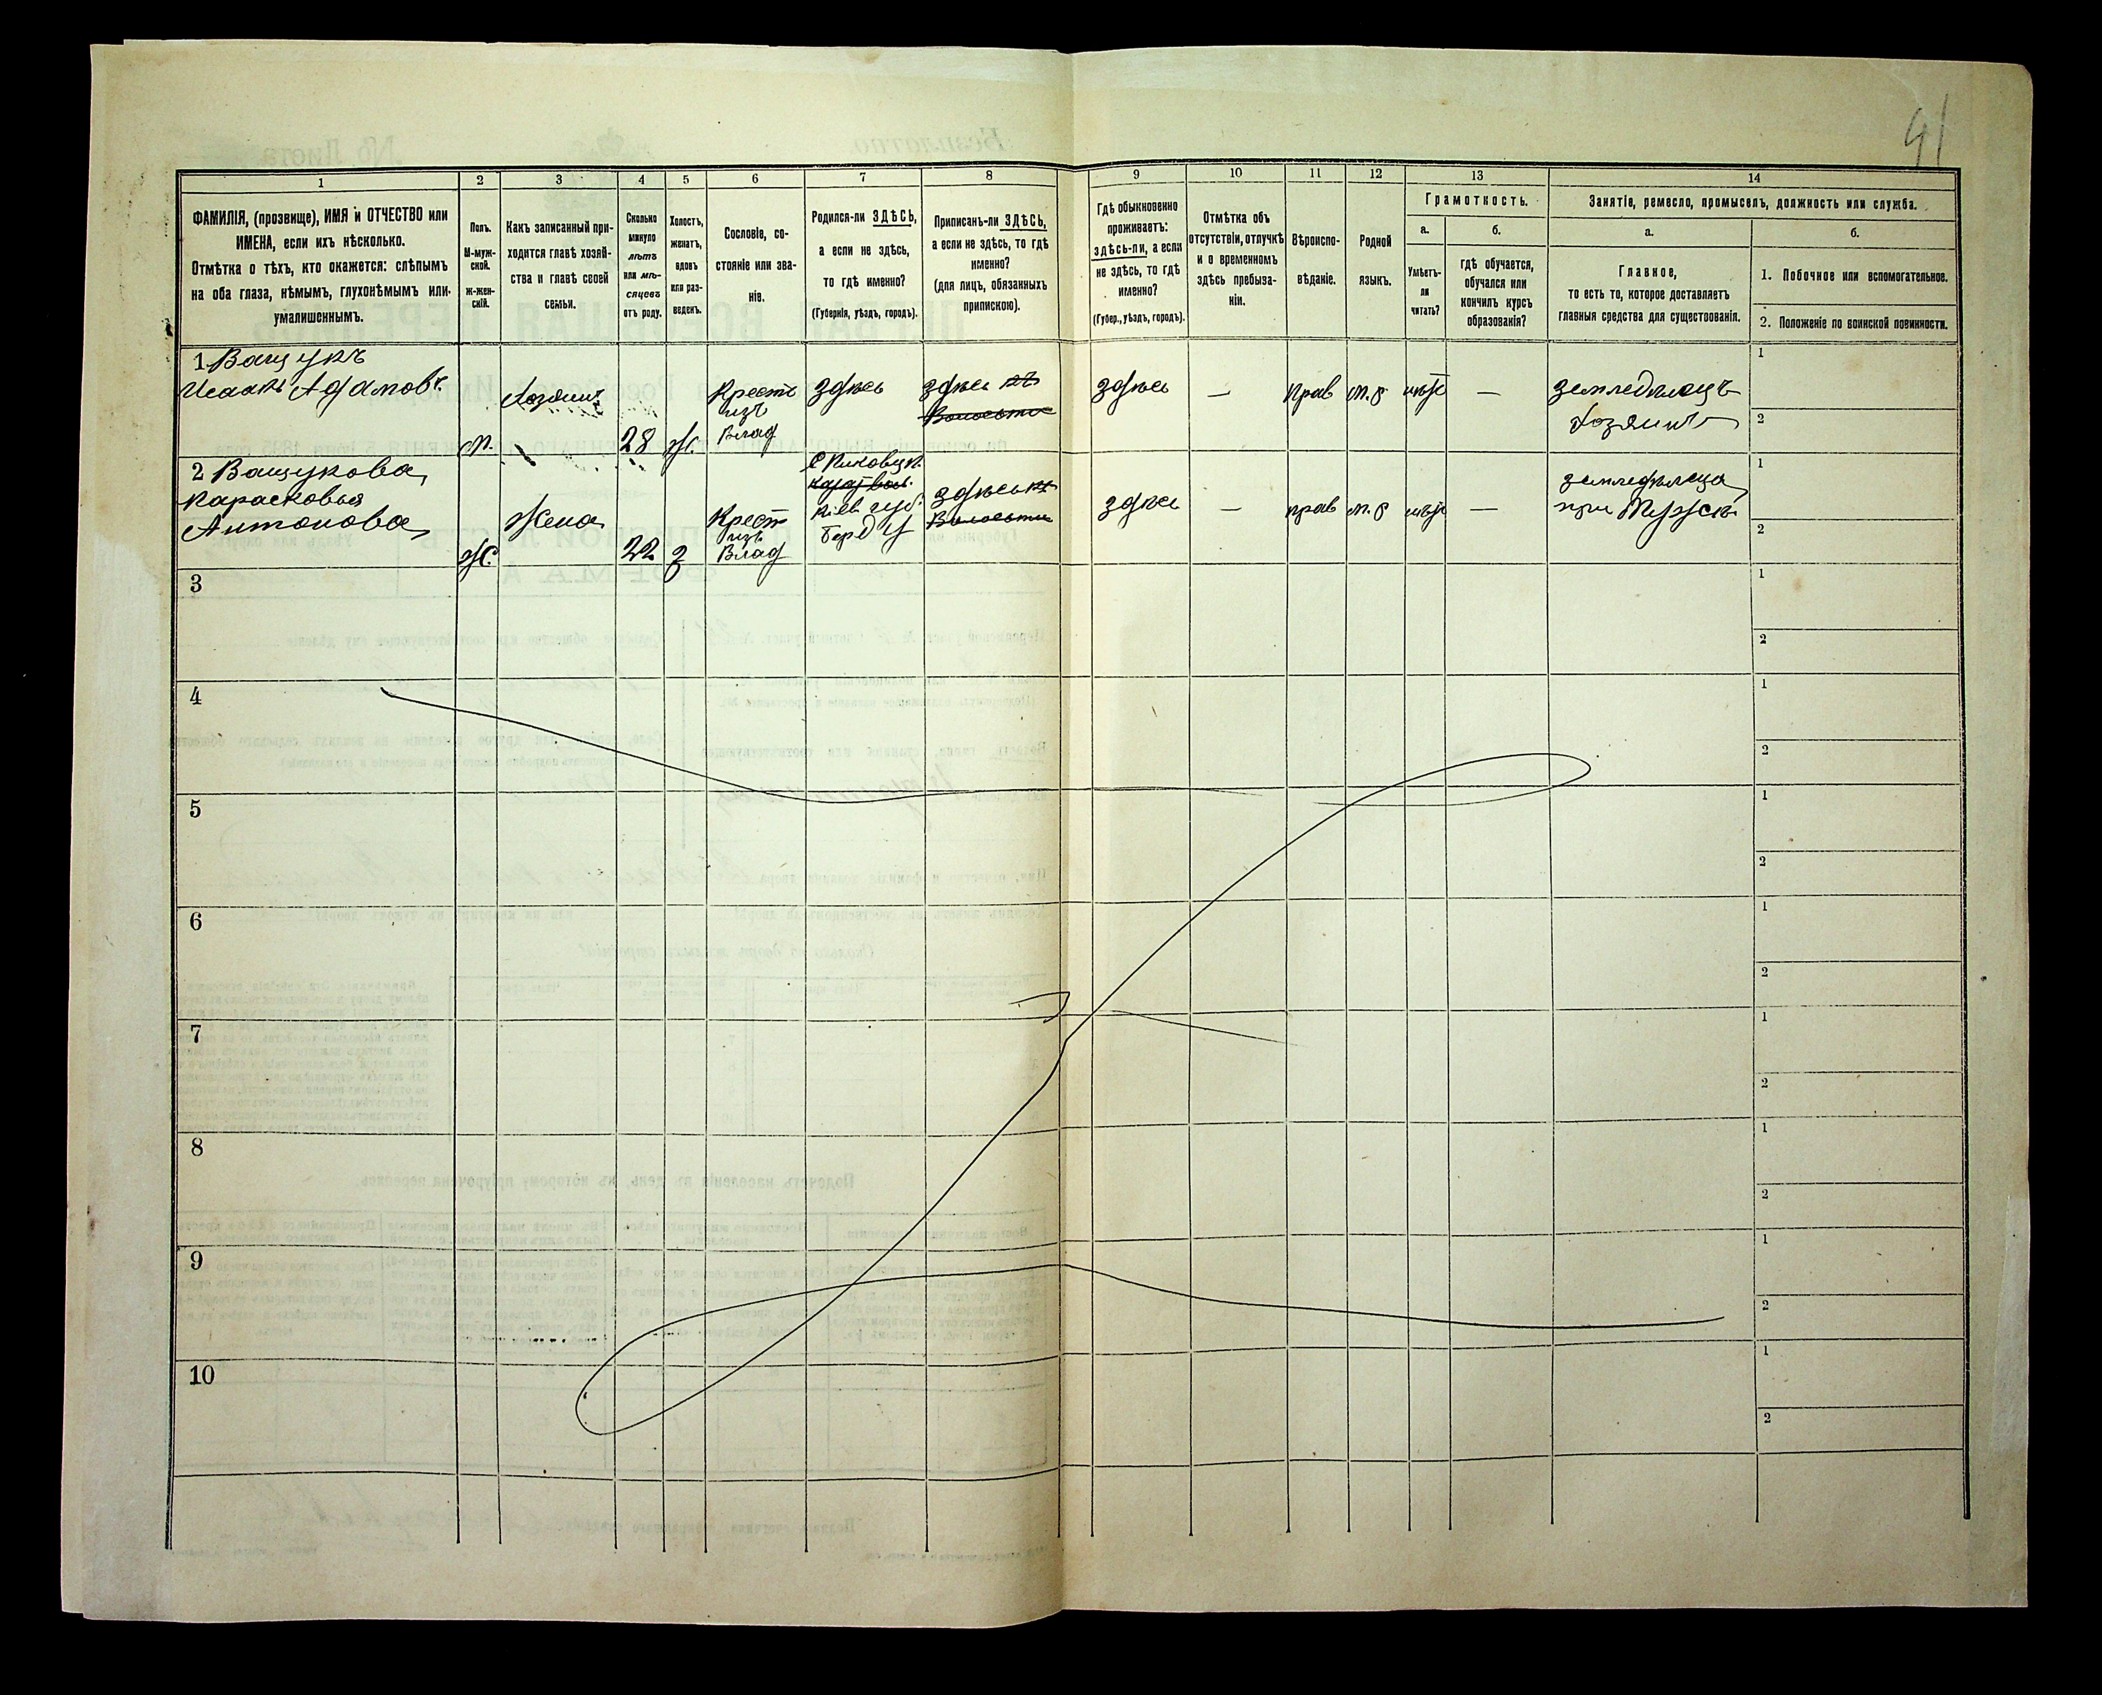 41
1
2
3
4
5
6
7
8
9
10
11
12
13
14
ФАМИЛІЯ, (прозвище), ИМЯ и ОТЧЕСТВО или
ИМЕНА, если ихъ нѣсколько.
Отмѣтка о тѣхъ, кто окажется: слѣпымъ
на оба глаза, нѣмымъ, глухонѣмымъ или
умалишеннымъ.
Полъ.
М-муж-
ской.
Ж-жен-
скій.
Какъ записанный при-
ходится главѣ хозяй-
ства и главѣ своей
семьи.
Сколько
минуло
лѣтъ
или мѣ-
сяцевъ
отъ роду.
Холостъ,
женатъ,
вдовъ
или раз-
веденъ.
Сословіе, со-
стояніе или зва-
ніе.
Родился-ли ЗДѢСЬ,
а если не здѣсь,
то гдѣ именно?
(Губернія, уѣздъ, городъ).
Приписанъ-ли ЗДѢСЬ,
а если не здѣсь, то гдѣ
именно?
(для лицъ, обязанныхъ
припискою).
Гдѣ обыкновенно
проживаетъ:
здѣсь-ли, а если
не здѣсь, то гдѣ
именно?
(Губер., уѣздъ, городъ).
Отмѣтка объ
отсутствіи, отлучкѣ
и о временномъ
здѣсь пребыва-
ніи.
Вѣроиспо-
вѣданіе.
Родной
языкъ.
Грамотность.
а.
Умѣетъ-
ли
читать?
б.
гдѣ обучается,
обучался или
кончилъ курсъ
образованія?
Занятіе, ремесло, промыселъ, должность или служба.
а.
Главное,
то есть то, которое доставляетъ
главныя средства для существованія.
б.
1. Побочное или вспомогательное.
2. Положеніе по воинской повинности.
1 Ващукъ
Исаакъ Адамовъ
М.
Хозяинъ
28
Ж.
Крест
изъ
Влад
здѣсь
здѣсь въ
Волости
здѣсь
—
прав
м. р
нѣтъ
—
земледѣлецъ
Хозяинъ
1
2
2 Ващукова
Парасковья
Антонова
Ж.
Жена
22
З
Крест
изъ
Влад
Кіев губ.
Берд у
здѣсь въ
Волости
здѣсь
—
прав
м. р
нѣтъ
—
земледѣлица
при Мужѣ
1
2
3
1
2
4
1
2
5
1
2
6
1
2
7
1
2
8
1
2
9
1
2
10
1
2